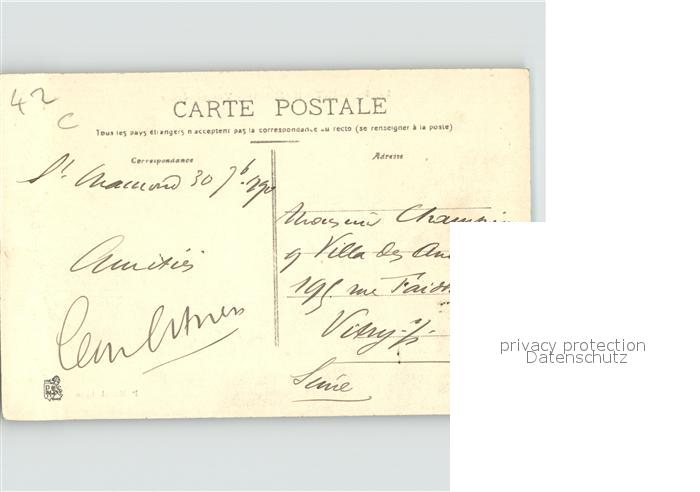 42
C
CARTE POSTALE
Tous les pays étrangers n'acceptent pas la correspondance au recto (se renseigner à la poste)
Correspondance
Adresse
St Chamond 30 7b
Monsieur
9 Villa des
195 rue
Amitiés
Vitry s/s
Seine
privacy protection
Datenschutz